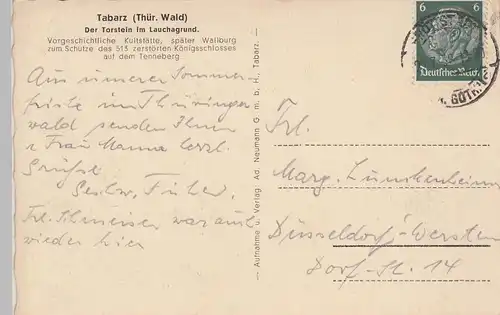 Tabarz (Thür. Wald)
Der Torstein im Lauchagrund.
Vorgeschichtliche Kultstätte, später Wallburg
zum Schutze des 513 zerstörten Königsschlosses
auf dem Tenneberg
Aus unserer Sommer-
frische im Thüringer
wald senden Ihnen
u Frau Mama herzl.
Grüße
Geschw.
Frl. war auch
wieder hier
— Aufnahme u. Verlag Ad. Neumann G. m. b. H., Tabarz. —
6 6
Deutsches Reich
GOTHA
Frl.
Marg.
Düsseldorf-Wersten
Dorf-St. 14